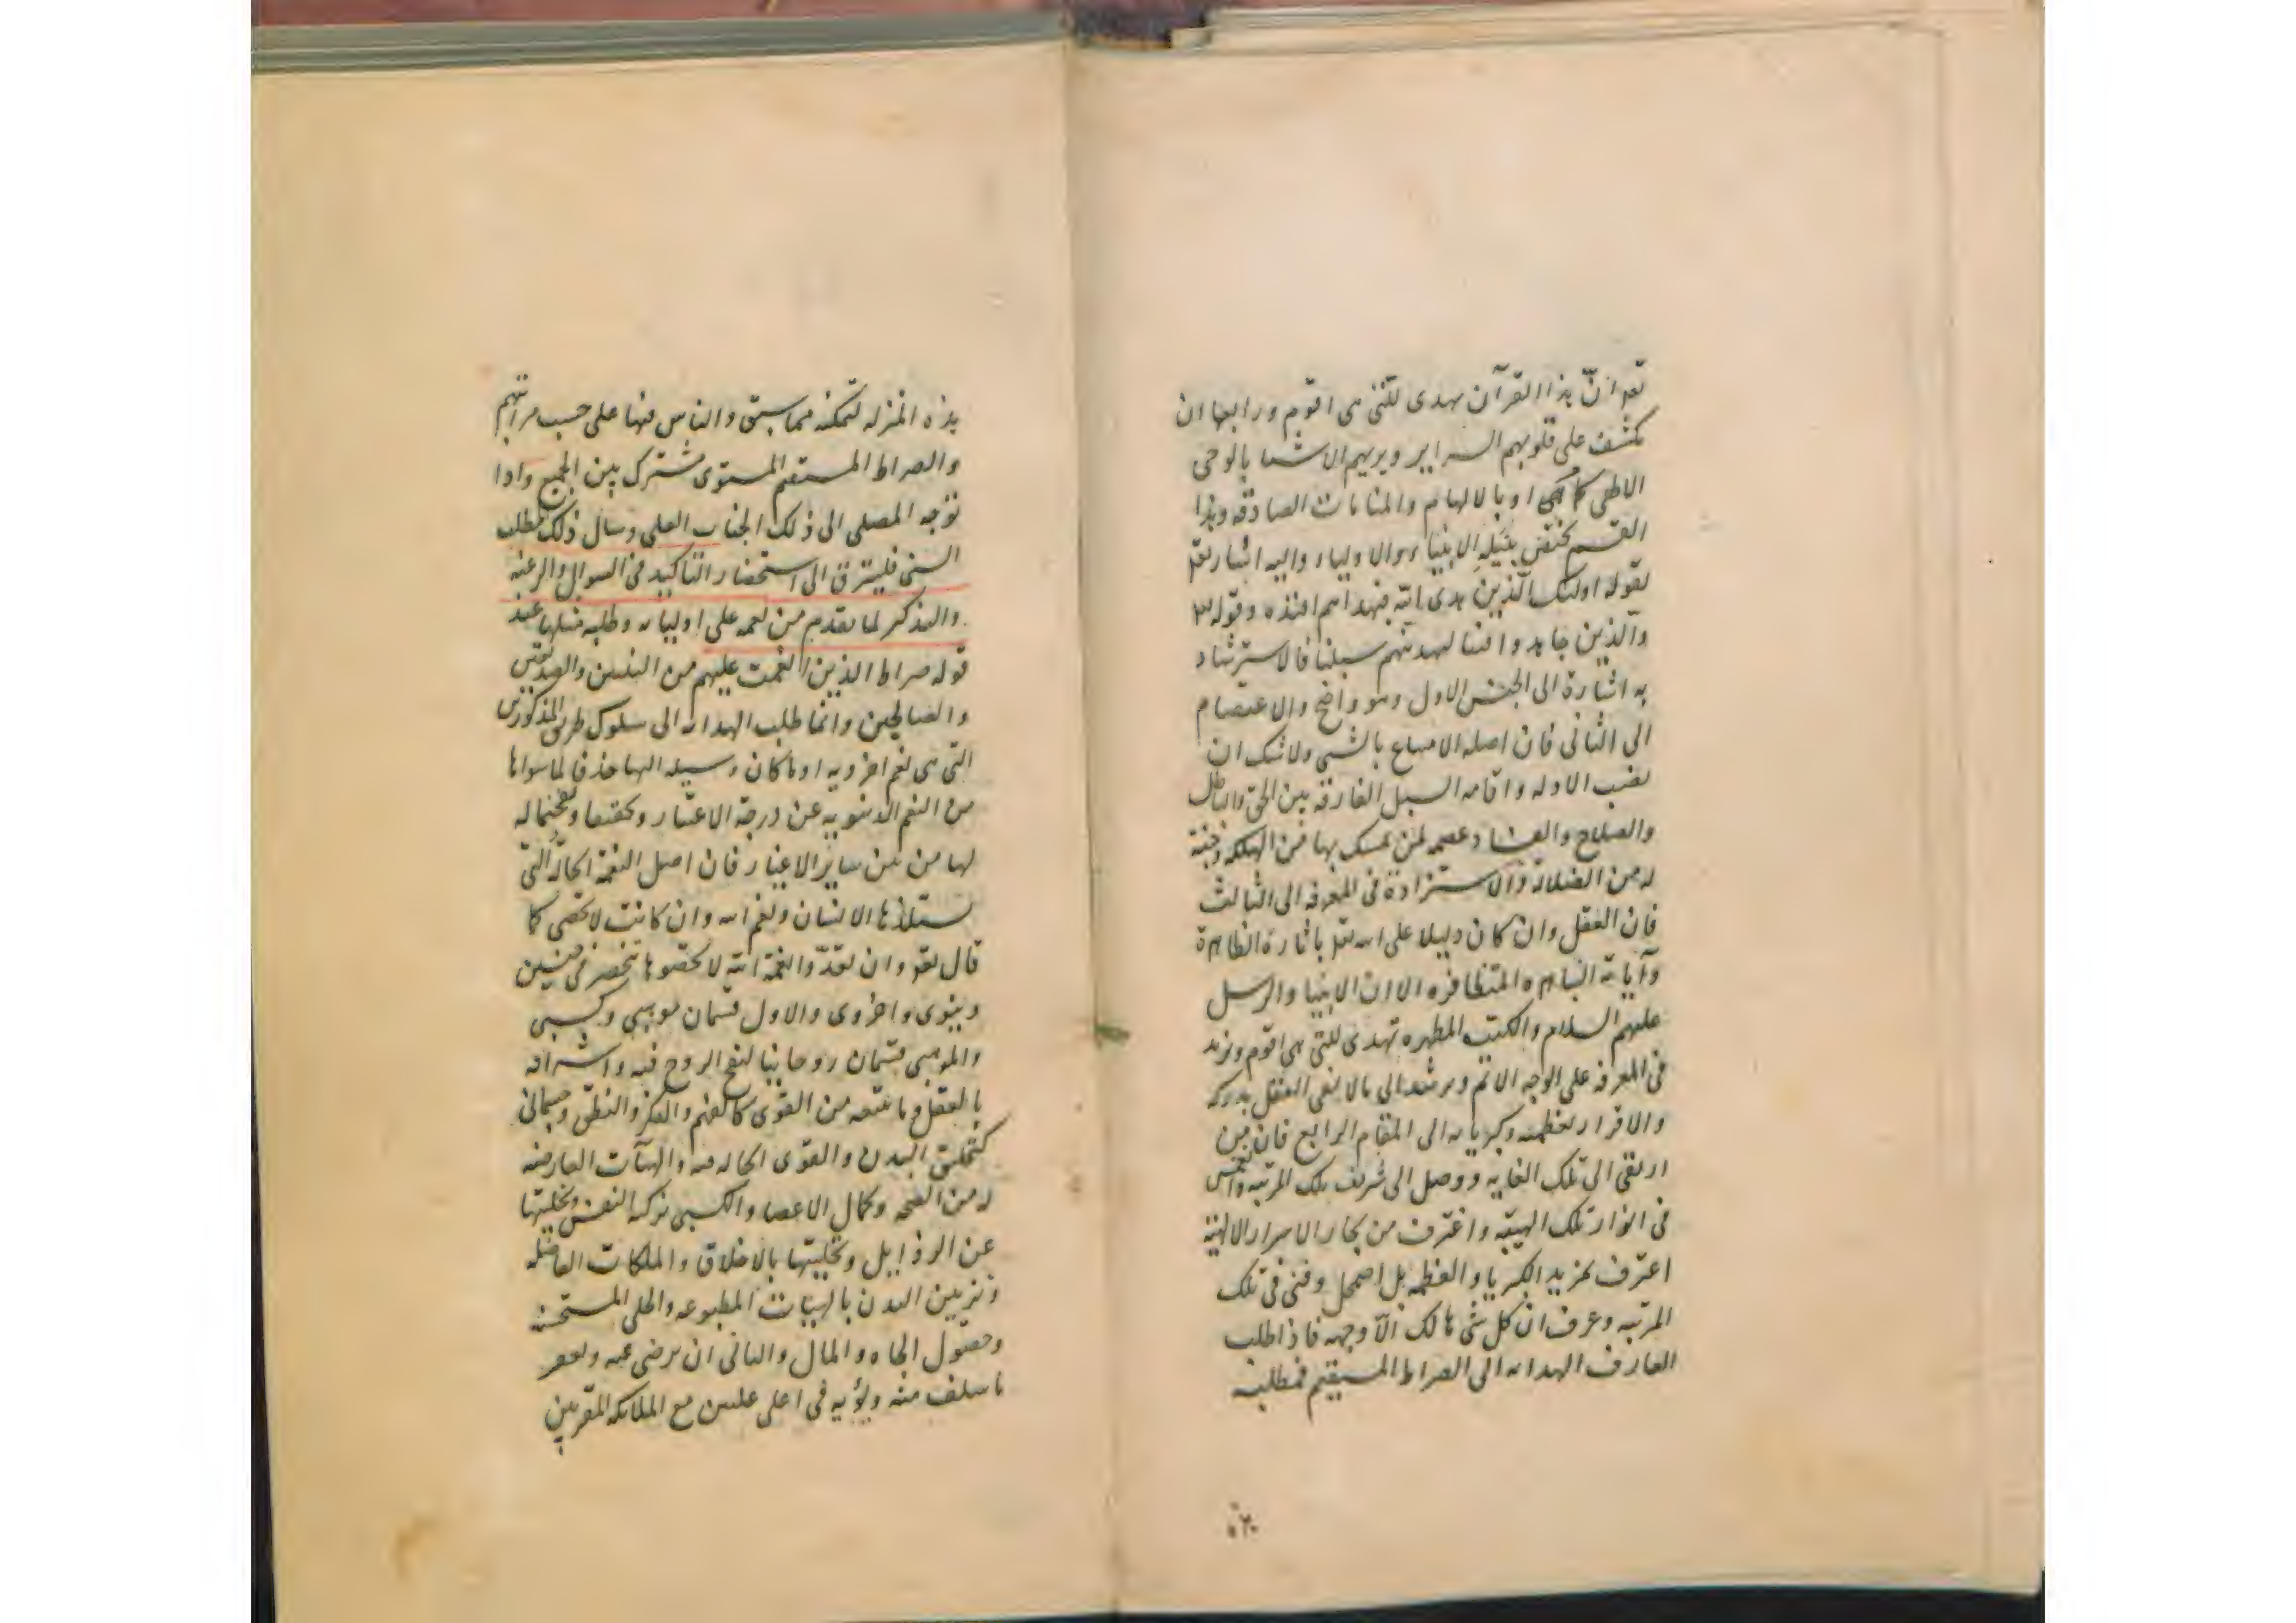 تعه انّ هذا القرآن یهدی للتی هی اقوم ورابعها ان
یکشف علی قلوبهم السرایر ویریهم الاشیا بالوحی
الالهی کما هی او بالالهام والمنامات الصادقه وهذا
القسم یختص بنیله الانبیاء والاولیاء والیه اشار تعه
بقوله اولئک الّذین هدی الله فبهداهم اقتده وقوله
والّذین جاهدوا فینا لنهدینهم سبلنا فالاسترشاد
به اشارة الی الجنس الاول وهو واضح والاعتصام
الی الثانی فان اصله الامتناع بالشی ولا شک ان
نصب الادله واقامه السبل الفارقه بین الحق والباطل
والصلاح والفساد عصمه لمن تمسک بها من الهلکه وجنة
له من الضلالة والاستزادة فی المعرفه الی الثالث
فان العقل وان کان دلیلا علی الله تعه باثاره الظاهرة
وآیاته الباهره المتظافره الا ان الانبیا والرسل
علیهم السلام والکتب المطهره تهدی للتی هی اقوم وتزید
فی المعرفه علی الوجه الاتم ویرشد الی ما لا یفی العقل بدرکه
والاقرار بعظمته وکبریائه الی المقام الرابع فان من
ارتقی الی تلک الغایه ووصل الی شریف تلک المرتبه وانغمس
فی انوار تلک الهیبّه واغترف من بحار الاسرار الالهیّة
اعترف بمزید الکبریا والعظمه بل اضمحل وفنی فی تلک
المرتبه وعرف ان کل شی هالک الّا وجهه فاذا طلب
العارف الهدایه الی الصراط المستقیم فمطلبه
هذه المنزله لتمکنه مما سبق والناس فیها علی حسب مراتبهم
والصراط المستقیم المستوی مشترک بین الجمیع واذا
توجه المصلی الی ذلک الجناب العلی وسال ذلک المطلب
السنی فلیترق الی استحضار التاکید فی السوال والرغبه
والتذکر لما تقدم من نعمه علی اولیائه وطلبه مثلها عند
قوله صراط الذین انعمت علیهم من النبیین والصدیقین
والصالحین وانما طلب الهدایه الی سلوک طریق المذکورین
التی هی نعم اخرویه او ما کان وسیله الیها حذفا لما سواها
من النعم الدنیویه عن درجة الاعتبار وتحقیقا وتفخیما له
لها من بین سایر الاغیار فان اصل النعمة الحالة التی
یستلذها الانسان ونعم الله وان کانت لا تحصی کما
قال تعه وان تعدّوا نعمة الله لا تحصوها تنحصر فی جنسین
دنیوی واخروی والاول قسمان موهبی وکسبی
والموهبی قسمان روحانیا کنفخ الروح فیه واشراقه
بالعقل وما یتبعه من القوی کالفهم والفکر والنطق وجسمانی
کتخلیق البدن والقوی الحاله فیه والهیآت العارضه
له من الصحه وکمال الاعضا والکسبی تزکیه النفس وتخلیتها
عن الرذایل وتحلیتها بالاخلاق والملکات الفاضله
وتزیین البدن بالهیئات المطبوعه والحلی المستحسنه
وحصول الجاه والمال والثانی ان یرضی عنه ویغفر
ما سلف منه ویؤیه فی اعلی علیین مع الملائکه المقربین